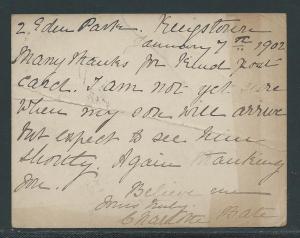 2 Eden Park. Kingstown
January 7th 1902
Many thanks for kind post
card. I am not yet sure
when my son will arrive
but expect to see him
shortly. Again thanking
you.
Believe me
Yours truly
Bate